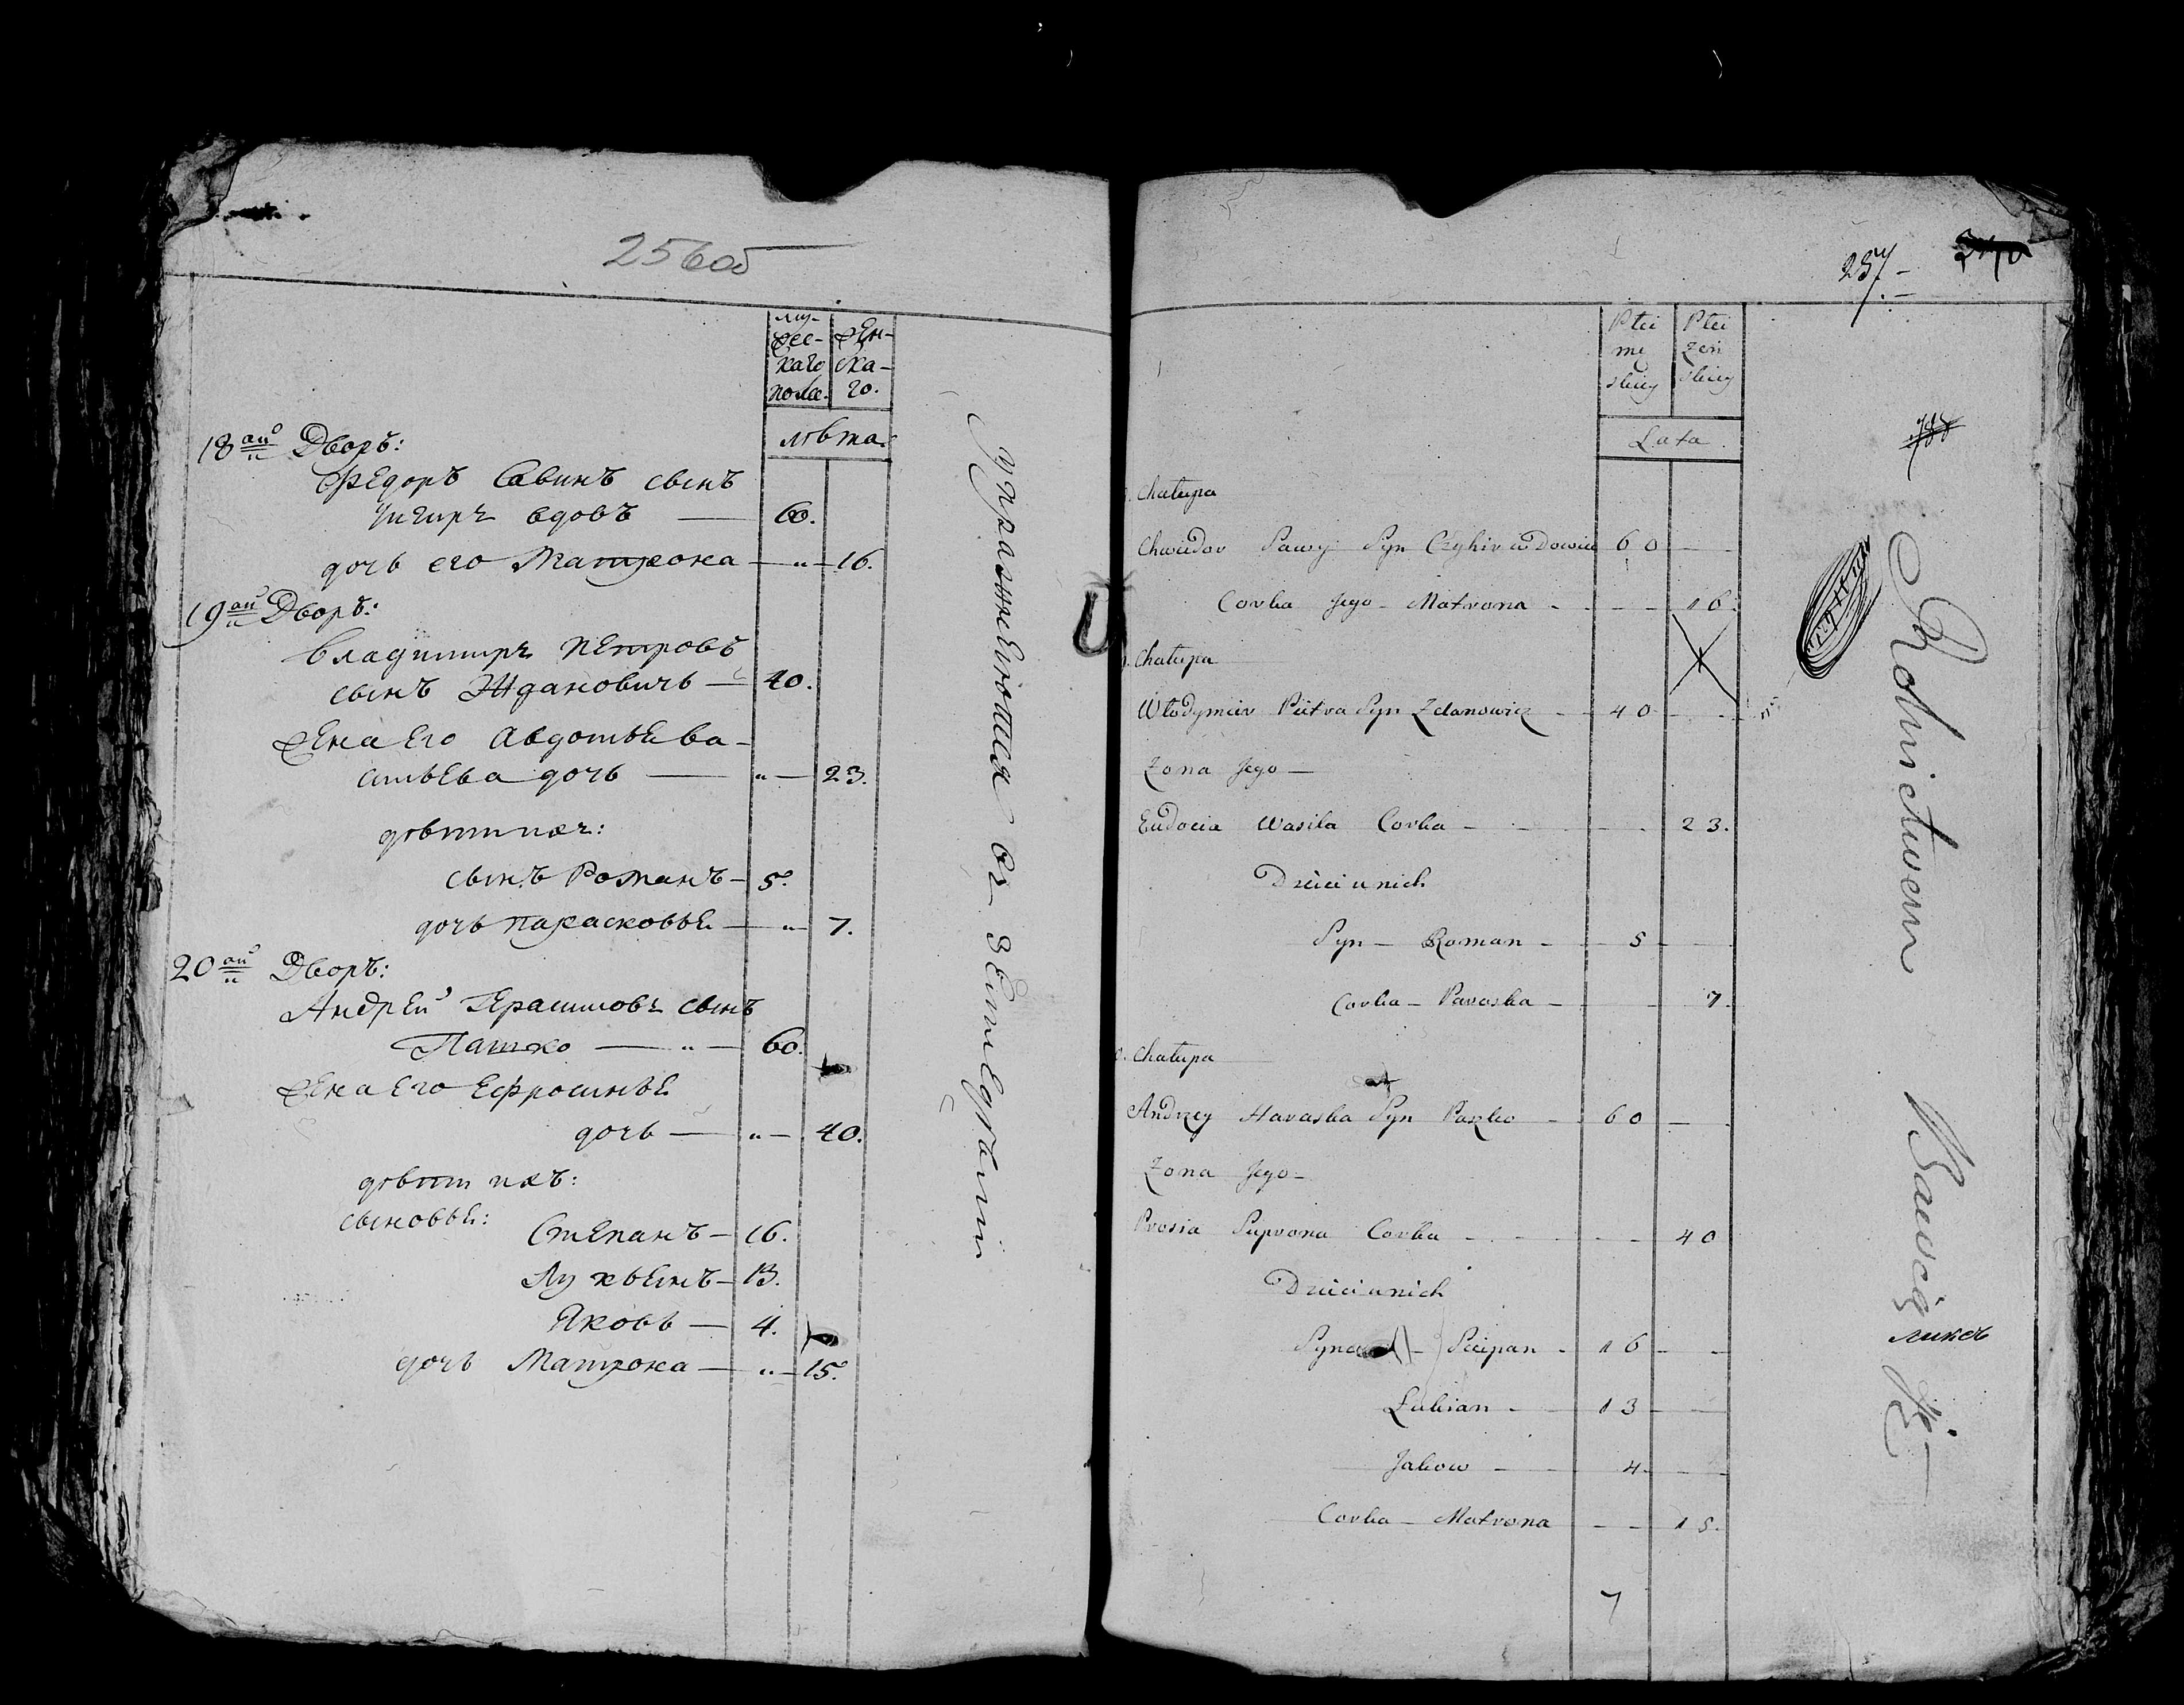 256об
му-
жес-
каго
пола.
жен-
ска-
го.
лѣта.
18ай Дворъ:
Федоръ Савинъ сынъ
Чигирь вдовъ — 60.
дочь его Матрона — „ — 16.
19ай Дворъ:
Владимиръ Петровъ
сынъ Ждановичь — 40.
жена Его Авдотье Ва-
сильева дочь — „ — 23.
дѣти ихъ:
сынъ Романъ — 5.
дочь Парасковье — „ — 7.
20ай Дворъ:
Андрей Герасимовъ сынъ
Пашко — „ — 60.
жена Его Ефросинье
дочь — „ — 40.
дѣти ихъ:
сыновье: Степанъ — 16.
Лукьянъ — 13.
Яковъ — 4.
дочь Матрона — „ — 15.
упражнеютця въ земледѣлии
257.
Płci
mę
skiey
Płci
żeń
skiey
Lata.
Chałupa
Chwiedor Sawy Syn Czyhir wdowiec 60 —
Corka Jego - Matrona - - - 16.
Chałupa
Włodymier Pietra Syn Zdanowicz - 40 - -
Zona Jego —
Eudocia Wasila Corka - - - 23.
Dzieci u nich
Syn — Roman - - 5 - -
Corka — Paraska - - 7.
Chałupa
Andrzey Haraska Syn Paszko - 60 - -
Zona Jego -
Prosia Suprona Corka - - - 40
Dzieci u nich
Syno - Sciepan - 16 - -
Łukian - 13 - -
Jakow - 4 - -
Corka — Matrona - - 15.
7
Rolnictwem Bawią się